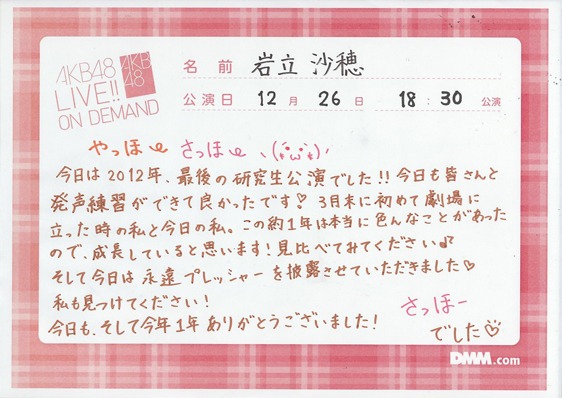 AKB48
LIVE!!
ON DEMAND
AKB
48
名前 岩立 沙穂
公演日 12月 26日 18:30 公演
やっほー さっほー ヽ(*^ω^*)ノ
今日は2012年、最後の研究生公演でした!! 今日も皆さんと
発声練習ができて良かったです♡ 3月末に初めて劇場に
立った時の私と今日の私。この約1年は本当に色んなことがあった
ので、成長していると思います! 見比べてみてください♪
そして今日は 永遠プレッシャーを披露させていただきました♡
私も見つけてください!
今日も、そして今年1年 ありがとうございました!
さっほー
でした♡
DMM.com